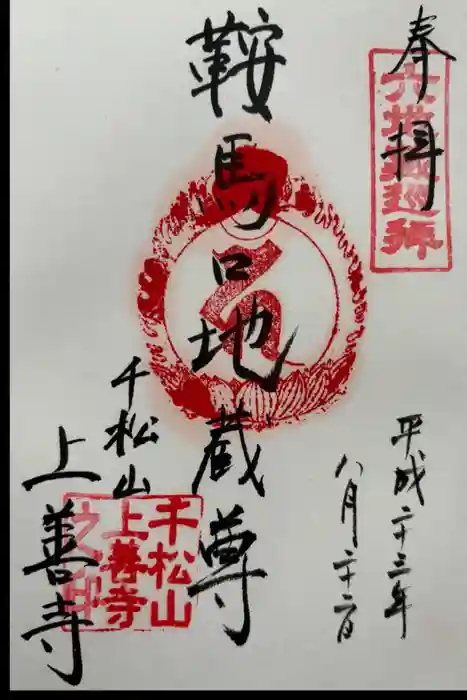 奉拝
六地蔵巡拝
平成二十三年
八月二十二日
鞍馬口地蔵尊
千松山
上善寺
千松山
上善寺
之印